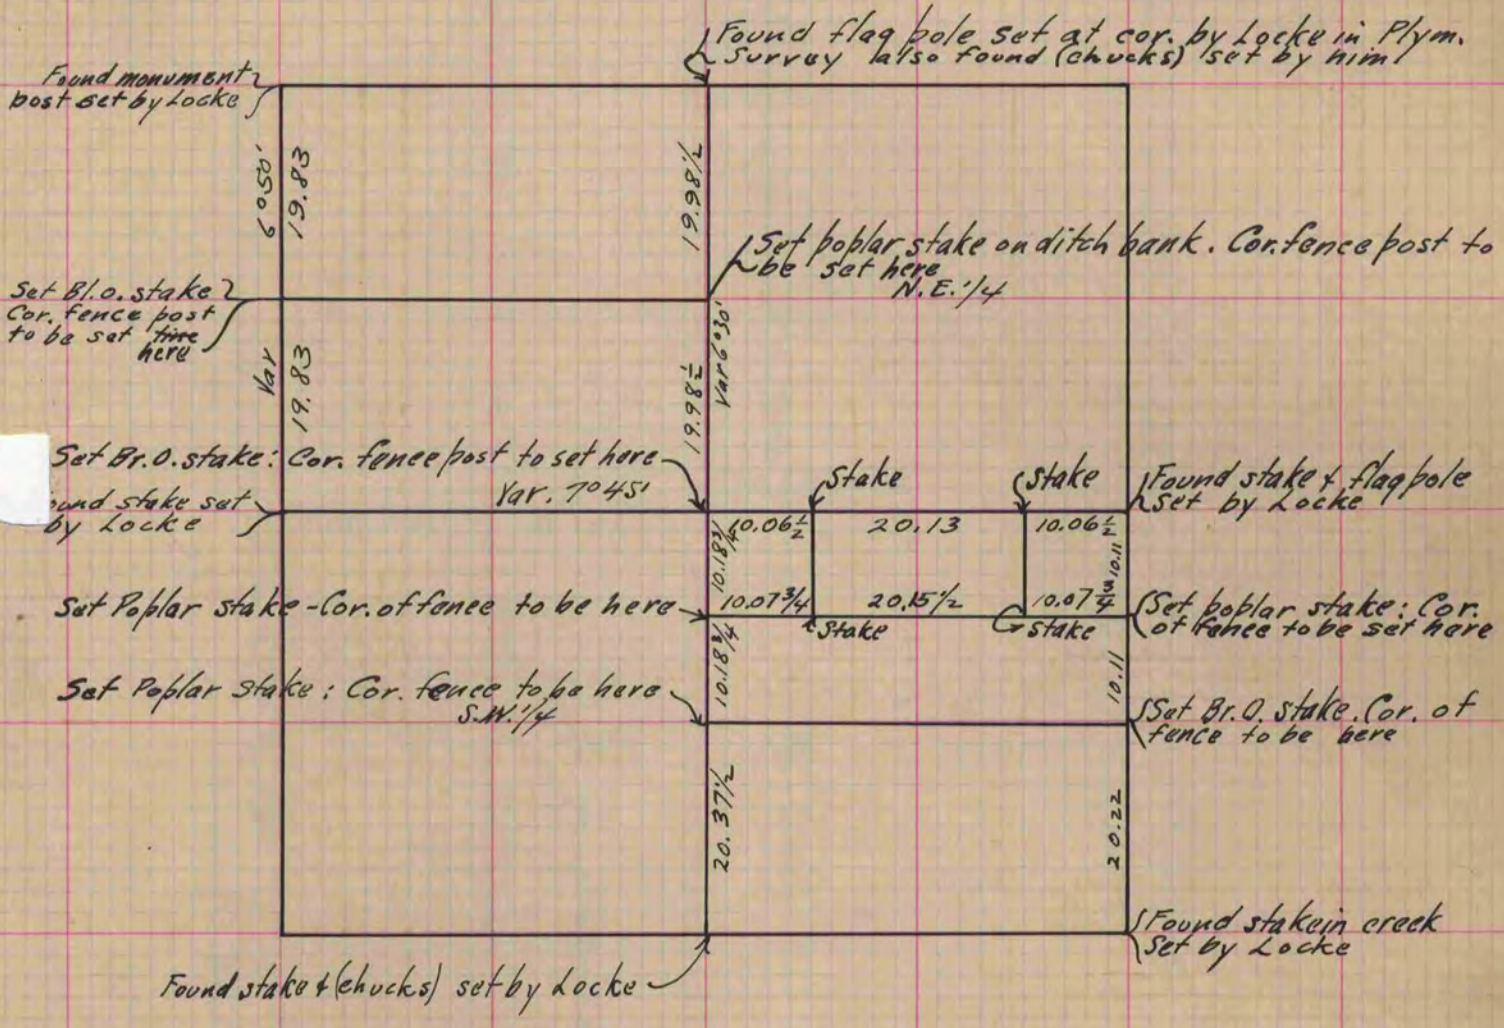 Found flag pole set at cor. by Locke in Plym.
Survey also found (chucks) set by him
Found monument
post set by Locke
6°50'
19.83
19.98 1/2
Set poplar stake on ditch bank. Cor. fence post to
be set here
N.E. 1/4
Set Bl.o. stake
Cor. fence post
to be set
here
Var
19.83
19.98 1/2
Var 6°30'
Set Br.O. stake: Cor. fence post to set here
Var. 7°45'
ound stake set
by Locke
Stake
Stake
Found stake & flag pole
Set by Locke
10.06 1/2
20.13
10.06 1/2
10.18 3/4
10.11
Set Poplar stake - Cor. of fence to be here
10.07 3/4
20.15 1/2
10.07 3/4
Stake
Stake
Set poplar stake: Cor.
of fence to be set here
10.18 3/4
10.11
Set Poplar Stake: Cor. fence to be here
S.W. 1/4
Set Br.O. stake. Cor. of
fence to be here
20.37 1/2
20.22
Found stake in creek
Set by Locke
Found stake & (chucks) set by Locke